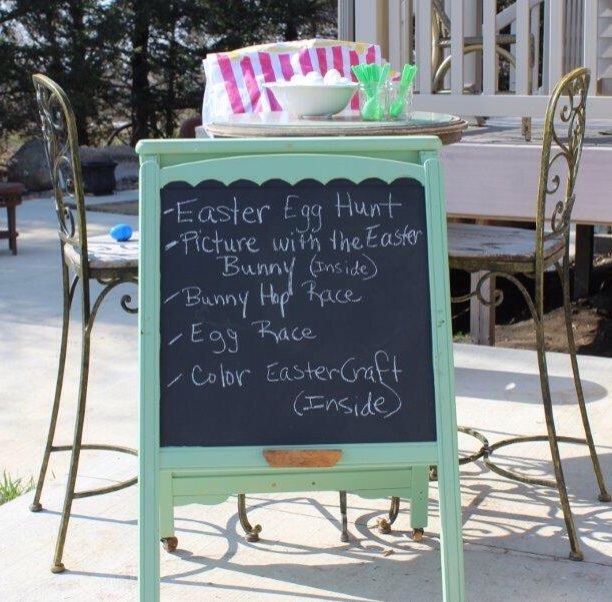 - Easter Egg Hunt
- Picture with the Easter
Bunny (Inside)
- Bunny Hop Race
- Egg Race
- Color Easter Craft
(Inside)